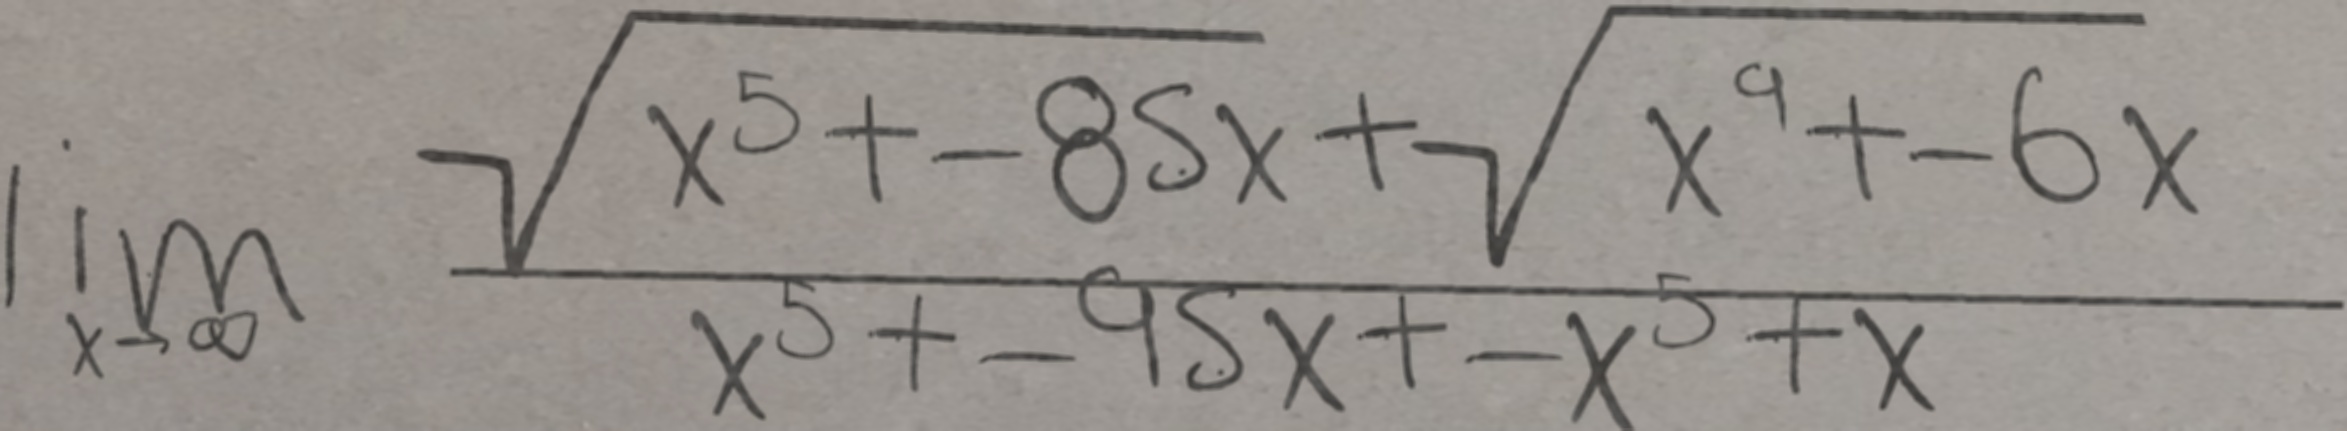 lim x→∞ (√(x^5 + -85x) + √(x^9 + -6x)) / (x^5 + -95x + -x^5 + x)